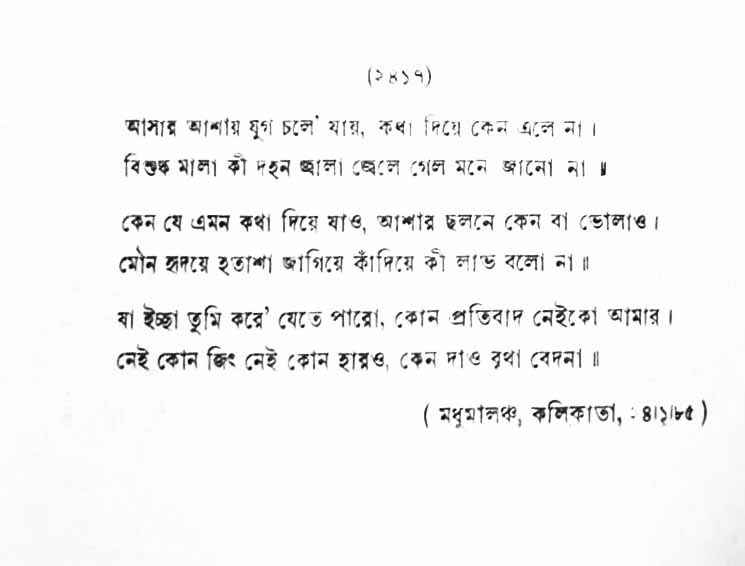 (২৪১৭)
আসার আশায় যুগ চলে' যায়, কথা দিয়ে কেন এলে না ।
বিশুষ্ক মালা কী দহন জ্বালা জ্বেলে গেল মনে জানো না ॥
কেন যে এমন কথা দিয়ে যাও, আশার ছলনে কেন বা ভোলাও ।
মৌন হৃদয়ে হতাশা জাগিয়ে কাঁদিয়ে কী লাভ বলো না ॥
যা ইচ্ছা তুমি করে' যেতে পারো, কোন প্রতিবাদ নেইকো আমার ।
নেই কোন জিৎ নেই কোন হারও, কেন দাও বৃথা বেদনা ॥
( মধুমালঞ্চ, কলিকাতা, : ৪।১।৮৫ )